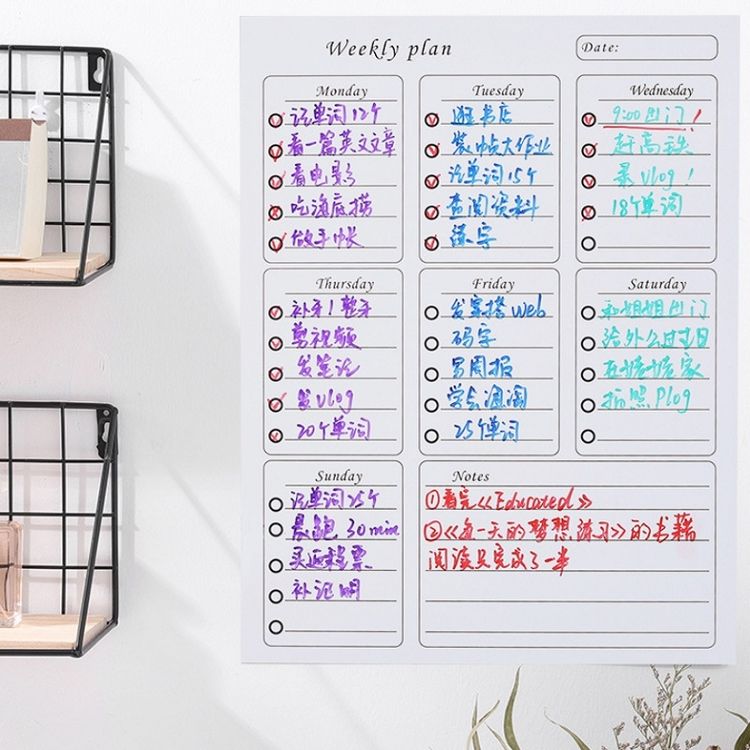 Weekly plan
Date:
Monday
记单词12个
看一篇英文文章
看电影
吃海底捞
做手帐
Tuesday
逛书店
装帧大作业
记单词15个
查阅资料
练字
Wednesday
9:00出门!
赶高铁
录vlog!
18个单词
Thursday
补牙!整牙
剪视频
发笔记
发vlog
20个单词
Friday
发害搭web
码字
写周报
25个单词
Saturday
和姐姐出门
给外公过生日
拍照Plog
Sunday
记单词25个
晨跑30min
买返程票
补证明
Notes
①看完《Educated》
②《每一天的梦想练习》的书籍
阅读只完成了一半